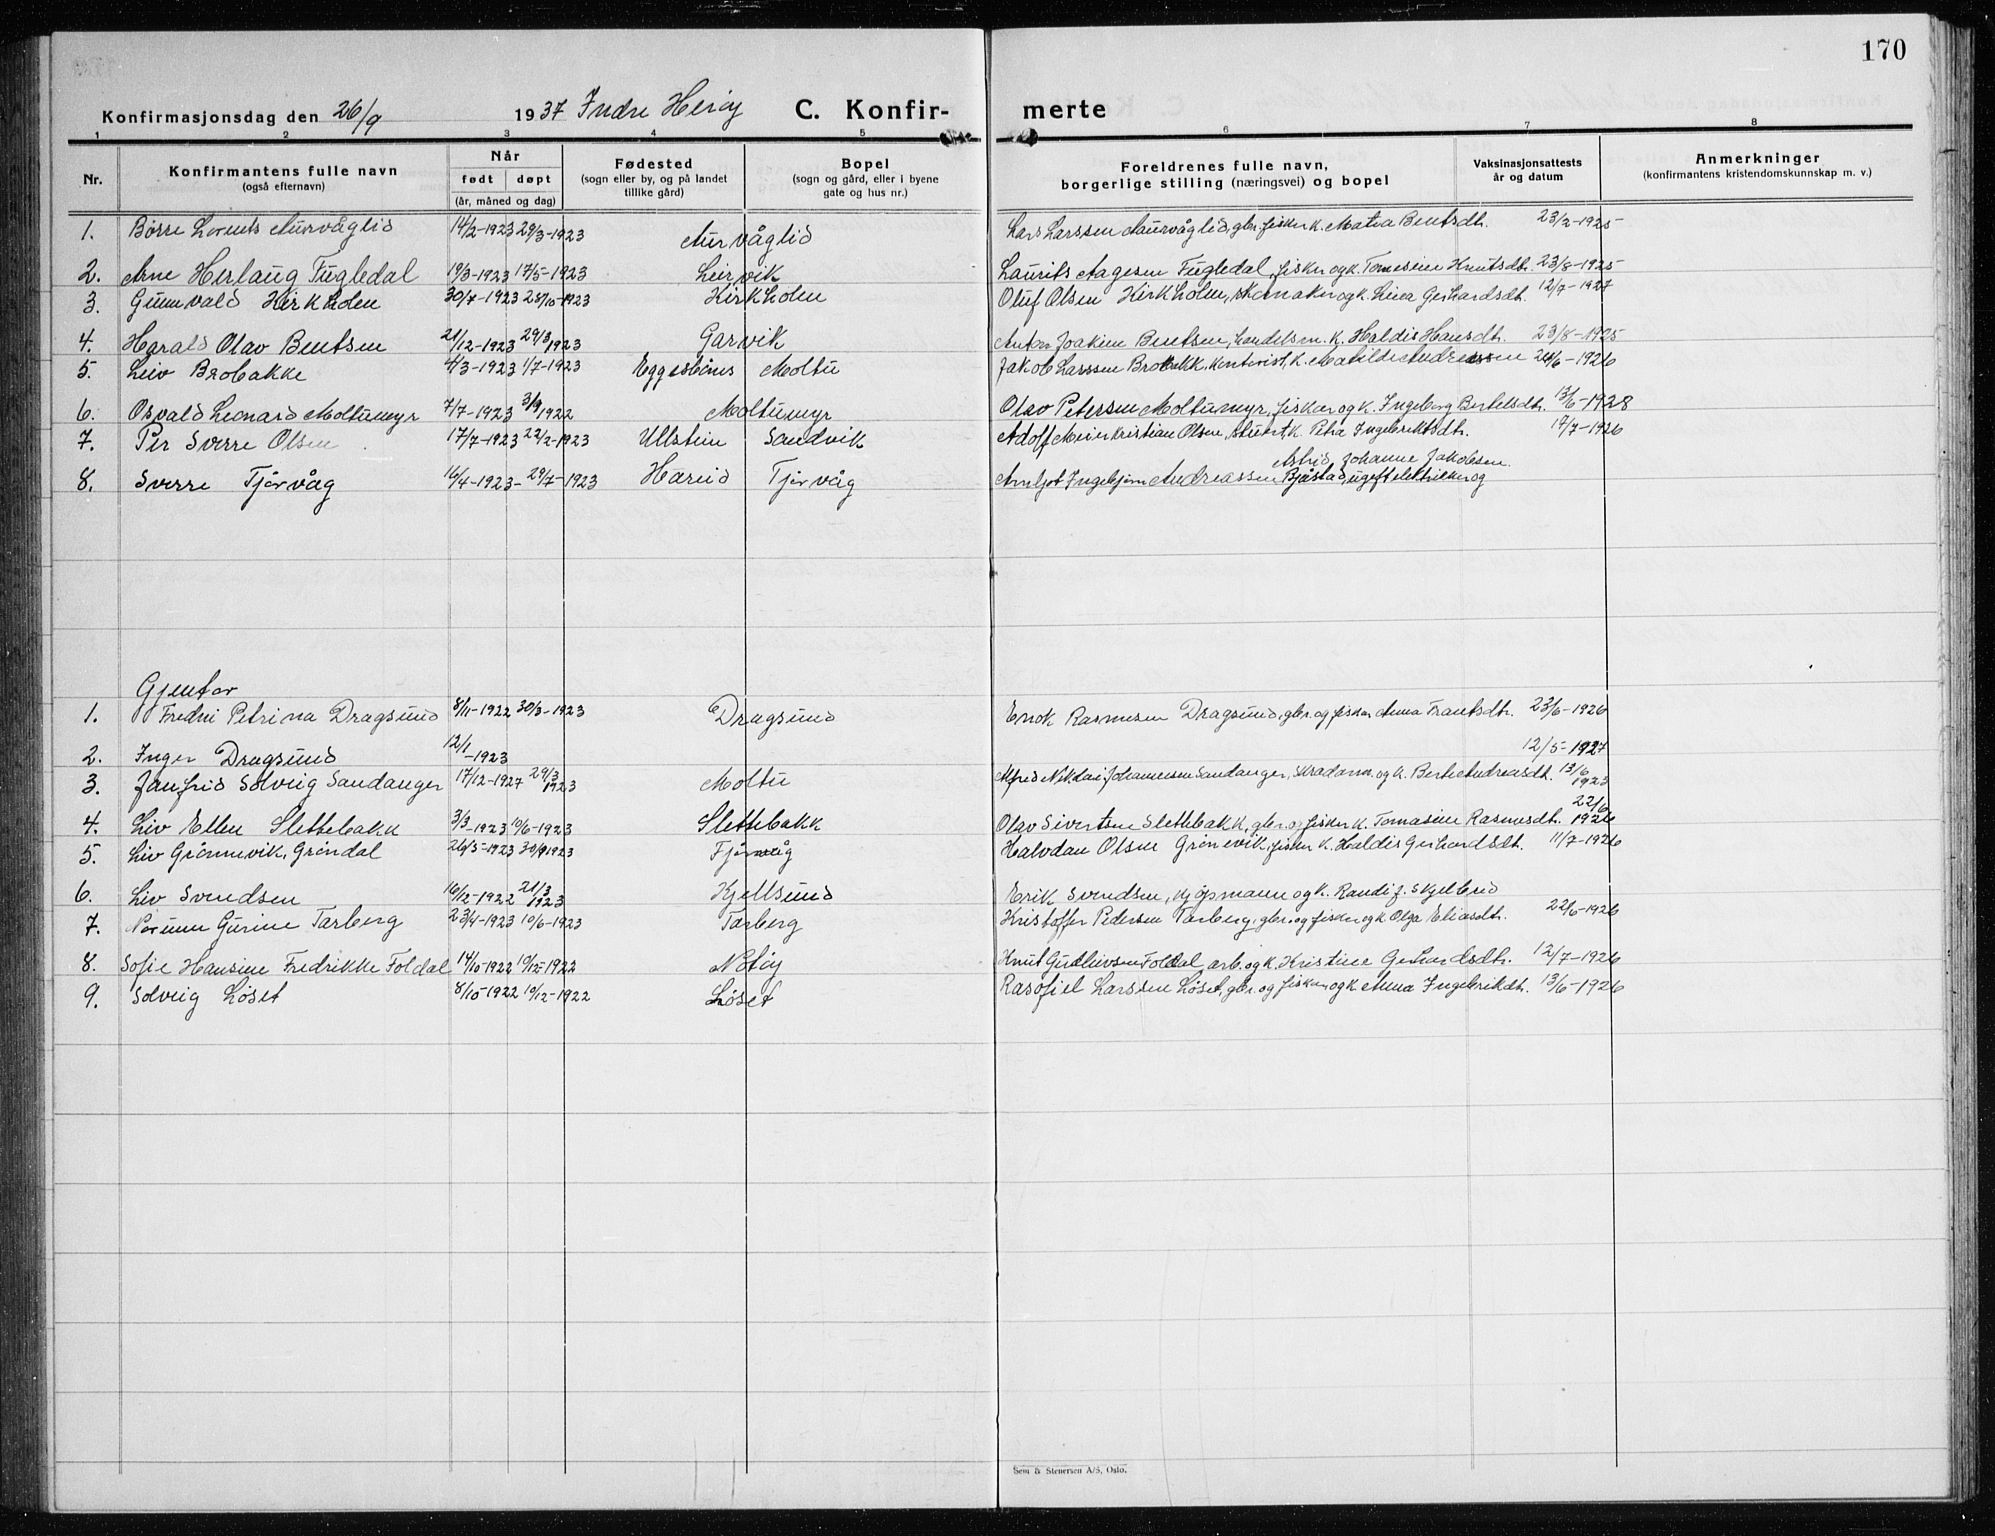 170
Konfirmasjonsdag den 26/9 1937 Indre Herøy C. Konfir- merte
1 2 3 4 5 6 7 8
Nr. Konfirmantens fulle navn (også efternavn) Når født døpt (år, måned og dag) Fødested (sogn eller by, og på landet tillike gård) Bopel (sogn og gård, eller i byene gate og hus nr.) Foreldrenes fulle navn, borgerlige stilling (næringsvei) og bopel Vaksinasjonsattests år og datum Anmerkninger (konfirmantens kristendomskunnskap m. v.)
1. Børre Lorents Aurvåglid 14/2-1923 29/3-1923 Aurvåglid Lars Larssen Aurvåglid, gbr. fisker k. Matea Bentsdt. 23/2-1925
2. Arne Herlaug Fugledal 19/3-1923 17/5-1923 Leirvik Laurits Aagesen Fugledal, fisker og k. Tomesine Knutsdt. 23/8-1925
3. Gunnvald Kirkholm 30/7-1923 28/10-1923 Kirkholm Oluf Olsen Kirkholm, skomaker og k. Lina Gerhardsdt. 12/7-1927
4. Harald Olav Bentsen 21/12-1923 29/3 1923 Garvik Anton Joakim Bentsen, handelsm. K. Haldis Hansdt. 23/8-1925
5. Leiv Brobakke 4/3-1923 1/7-1923 Eggesbønes Moltu Jakob Larssen Brobakk, kontorist, K. Matilde Andreassen 24/6-1926
6. Osvald Leonard Moltumyr 7/7-1923 3/9 1922 Moltumyr Olav Petersen Moltumyr, fisker og k. Ingeborg Bertelsdt. 13/6-1928
7. Per Sverre Olsen 17/7-1923 22/2-1923 Ullstein Sandvik Adolf Meier Kristian Olsen, k. Petra Ingebriktsdt. 17/7-1926
Astrid Johanne Jakobsen
8. Sverre Tjørvåg 16/4-1923- 29/7-1923 Hareid Tjørvåg Arnljot Ingebjørn Andreassen Bjåstad, ugift elektriker og
Gjentor
1. Fredni Petrina Dragsund 8/11-1922 30/3-1923 Dragsund Enok Rasmusen Dragsund, gbr. og fisker Anna Frantsdt. 23/6-1926
2. Inger Dragsund 12/1-1923 12/5-1927
3. Janfrid Solveig Sandanger 17/12-1927 29/3 1923 Moltu Alfred Nikolai Johannesen Sandanger, og k. Berte Andreasdt. 13/6 1923
4. Liv Ellen Slettebakk 3/3-1923 10/6-1923 Slettebakk Olav Sivertsen Slettebakk, gbr. og fisker k. Tomasine Rasmusdt. 22/6 1926
5. Liv Grönnevik, Gröndal 26/5-1923 30/9 1923 Halvdan Olsen Grönevik, fisker k. Haldis Gerhardsdt. 11/7-1926
6. Liv Svendsen 16/12-1922 21/3 1923 Kjellsund Erik Svendsen, kjöpmann og k. Randi J. Skjelbrid
7. Norunn Gurine Tarberg 23/4-1923 10/6-1923 Tarberg Kristoffer Pedersen Tarberg, gbr. og fisker og k Olga Eliasdt. 22/6-1926
8. Sofie Hansine Fredrikke Foldal 14/10-1922 10/12-1922 Notøy Knut Gudleivsen Foldal, arb. og k. Kristine Gerhardsdt. 12/7-1926
9. Solveig Løset 8/10-1922 10/12-1922 Løset Rasofiel Larssen Løset, gbr. og fisker og k Anna Ingebrikdt. 13/6-1926
Sem & Stenersen A/S, Oslo.